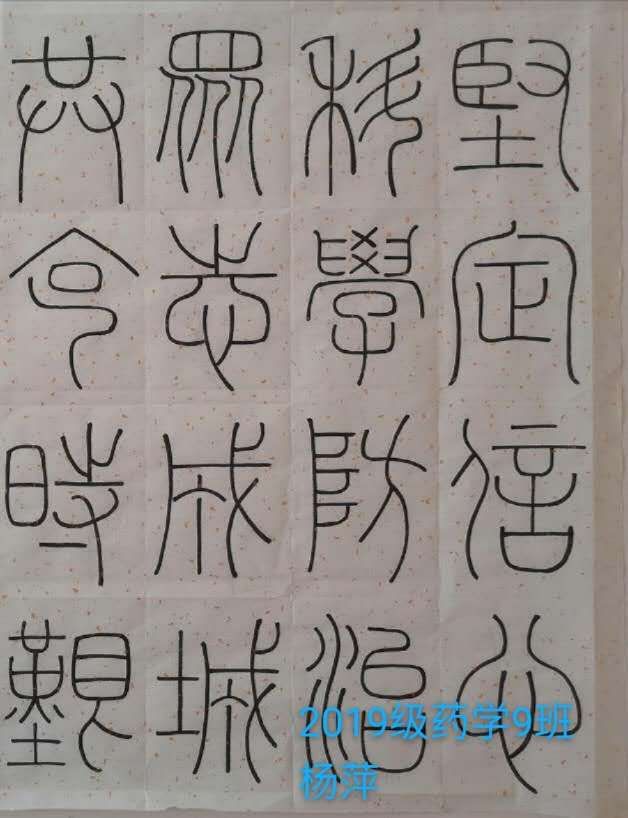 堅定信心
科學防治
眾志成城
共克時艱
2019级药学9班
杨萍